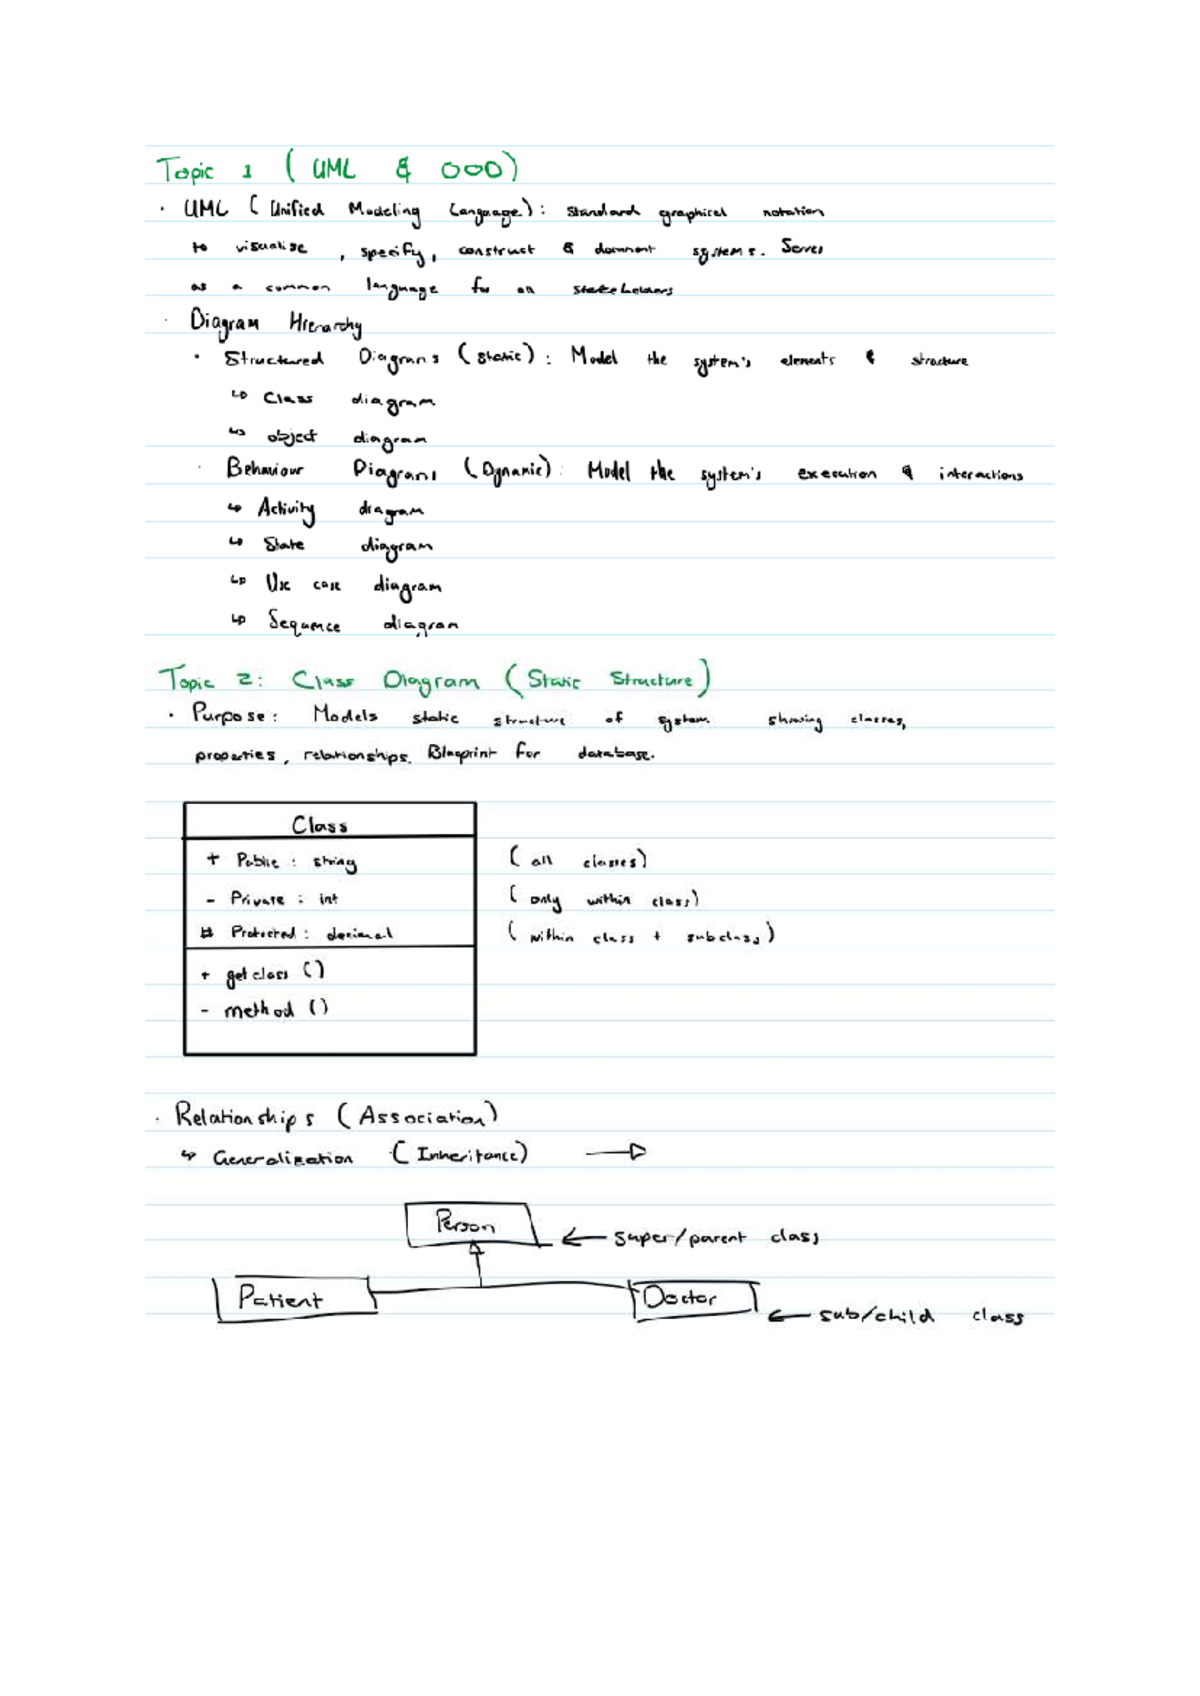 Topic 1 ( UML & OOD)
· UML ( Unified Modeling Language) : Standard graphical notation
to visualise , specify, construct & document systems. Serves
as a common language for all stakeholders
· Diagram Hierarchy
· Structured Diagrams (Static) : Model the system's elements & structure
↳ Class diagram
↳ object diagram
· Behaviour Diagrams (Dynamic) : Model the system's execution & interactions
↳ Activity diagram
↳ State diagram
↳ Use case diagram
↳ Sequence diagram
Topic 2: Class Diagram (Static Structure)
· Purpose: Models static structure of system showing classes,
properties, relationships. Blueprint for database.
Class
+ Public : string ( all classes)
- Private : int ( only within class)
# Protected : decimal ( within class + subclass)
+ getclass ()
- method ()
· Relationships (Association)
↳ Generalization (Inheritance)
Person
← super/parent class
Patient Doctor
← sub/child class